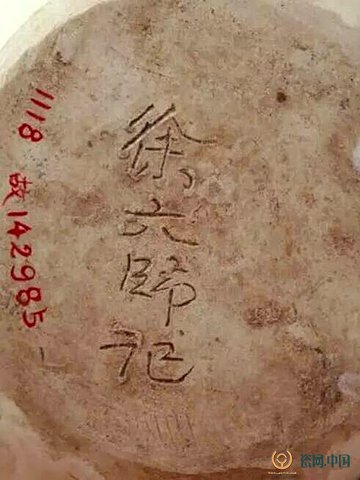 徐六師记
1118 故142985-
瓷网.中国